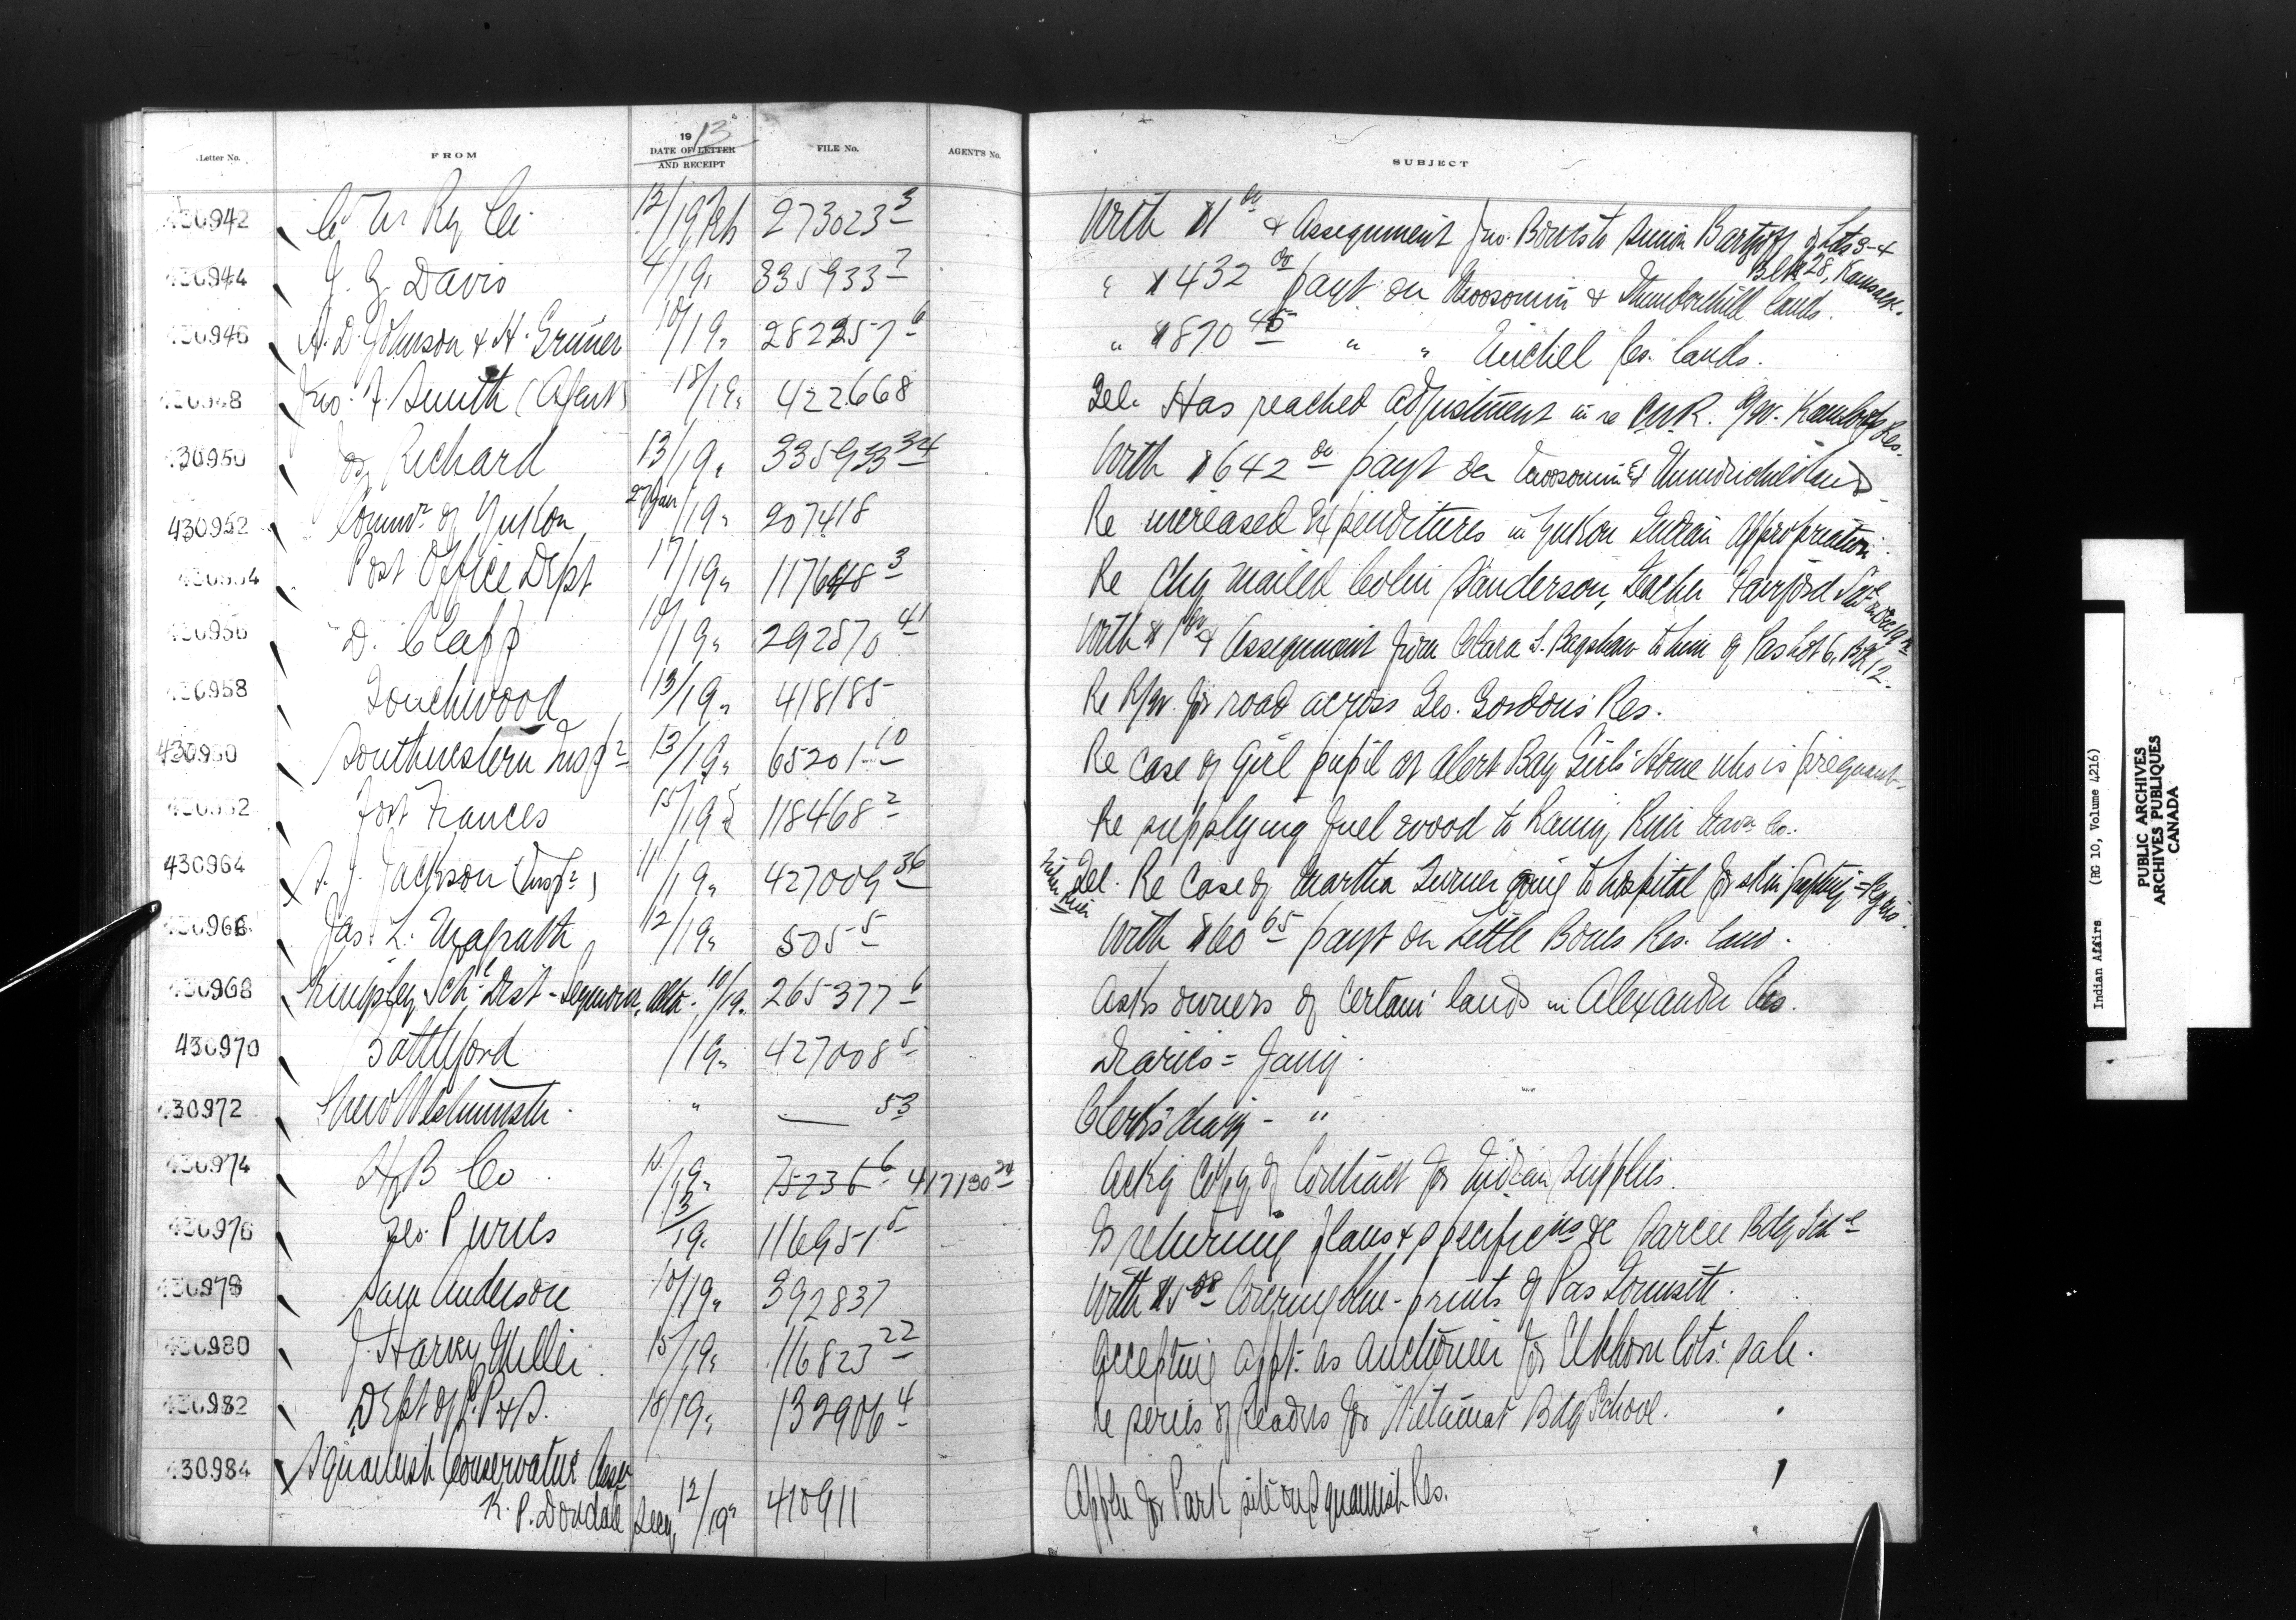 Letter No. FROM 1913 DATE OF LETTER AND RECEIPT FILE No. AGENT'S No. SUBJECT
430942 C N Ry Co. 12/19 Feb 273023 3 With $1 00 & Assignment Jno. Bowes to Simon Bartzoff of Lots 3-4
Blk 28, Kamsack.
430944 J. G. Davis 4/19 " 335933 7 " $432 00 payt on Moosomin & Thunderchild lands.
430946 A. D. Johnson & H. Gruner 10/19 " 282257 6 " $870 45 " " Michel Res. lands.
430948 Jno. F. Smith (Agent) 18/19 " 422668 Tel. Has reached adjustment in re C.N.R. R/W. Kamloops Res.
430950 Jos Richard 13/19 " 335933 34 With $642 00 payt on Moosomin & Thunderchild lands
430952 Commr. of Yukon 27 Jan/19 " 207418 Re increased expenditures in Yukon Indian Appropriation.
430954 Post Office Dept 17/19 " 117648 3 Re Chq mailed Colin Sanderson, Teacher Fairford
430956 D. Clapp 10/19 " 292570 41 With $1 00 & Assignment from Clara S. Bagshaw to him of Pas Lot 6, Blk 12.
430958 Touchwood 13/19 " 418185 Re R/W. for road across Geo. Gordon's Res.
430960 Southwestern Inspr 13/19 " 65201 10 Re case of girl pupil at Alert Bay Girls' Home who is pregnant.
430962 Fort Frances 15/19 " 118468 2 Re supplying fuel wood to Rainy River Navn Co.
430964 S. J. Jackson (Inspr) 11/19 " 427009 36 Tel. Re case of Martha Turner going to hospital for skin grafting = Regis
Fisher River
430966 Jas. L. Magrath 12/19 " 505 5 With $60 65 payt on Little Bones Res. land.
430968 Sch. Dist - , Alta. 10/19 " 265377 6 Asks owners of certain lands in Alexander Res.
430970 Battleford /19 " 427008 5 Diaries = Jany.
430972 New Westminster " — 53 Clerk's diary - "
430974 H B Co 10/19 " 75236 6 417130 24 Ackg Copy of Contract for Indian Supplies.
430976 Geo. Purves 13/19 " 116951 5 Is returning plans & specificns &c Sarcee Bdg Schl
430978 Sam Anderson 10/19 " 392837 With $5 00 covering blue-prints of Pas Townsite.
430980 J. Harry Miller 15/19 " 116823 22 Accepting appt. as auctioneer for Elkhorn lots sale.
430982 Dept of P. P & S. 18/19 " 132906 4 Re series of Readers for Kitamat Bdg School.
430984 Squamish Conservative Assn
K. P. Secy, 12/19 " 410911 Appln for Park site on Squamish Res.
Indian Affairs (RG 10, Volume 4216)
PUBLIC ARCHIVES
ARCHIVES PUBLIQUES
CANADA